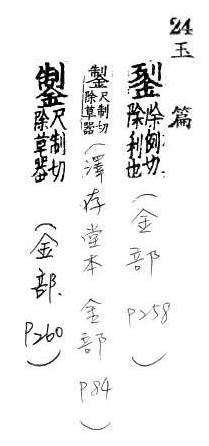 24 玉篇
例切
除利也
（金部 P258）
尺制切
除草器
（澤存堂本 金部 P84）
尺制切
除草器
（金部 P260）